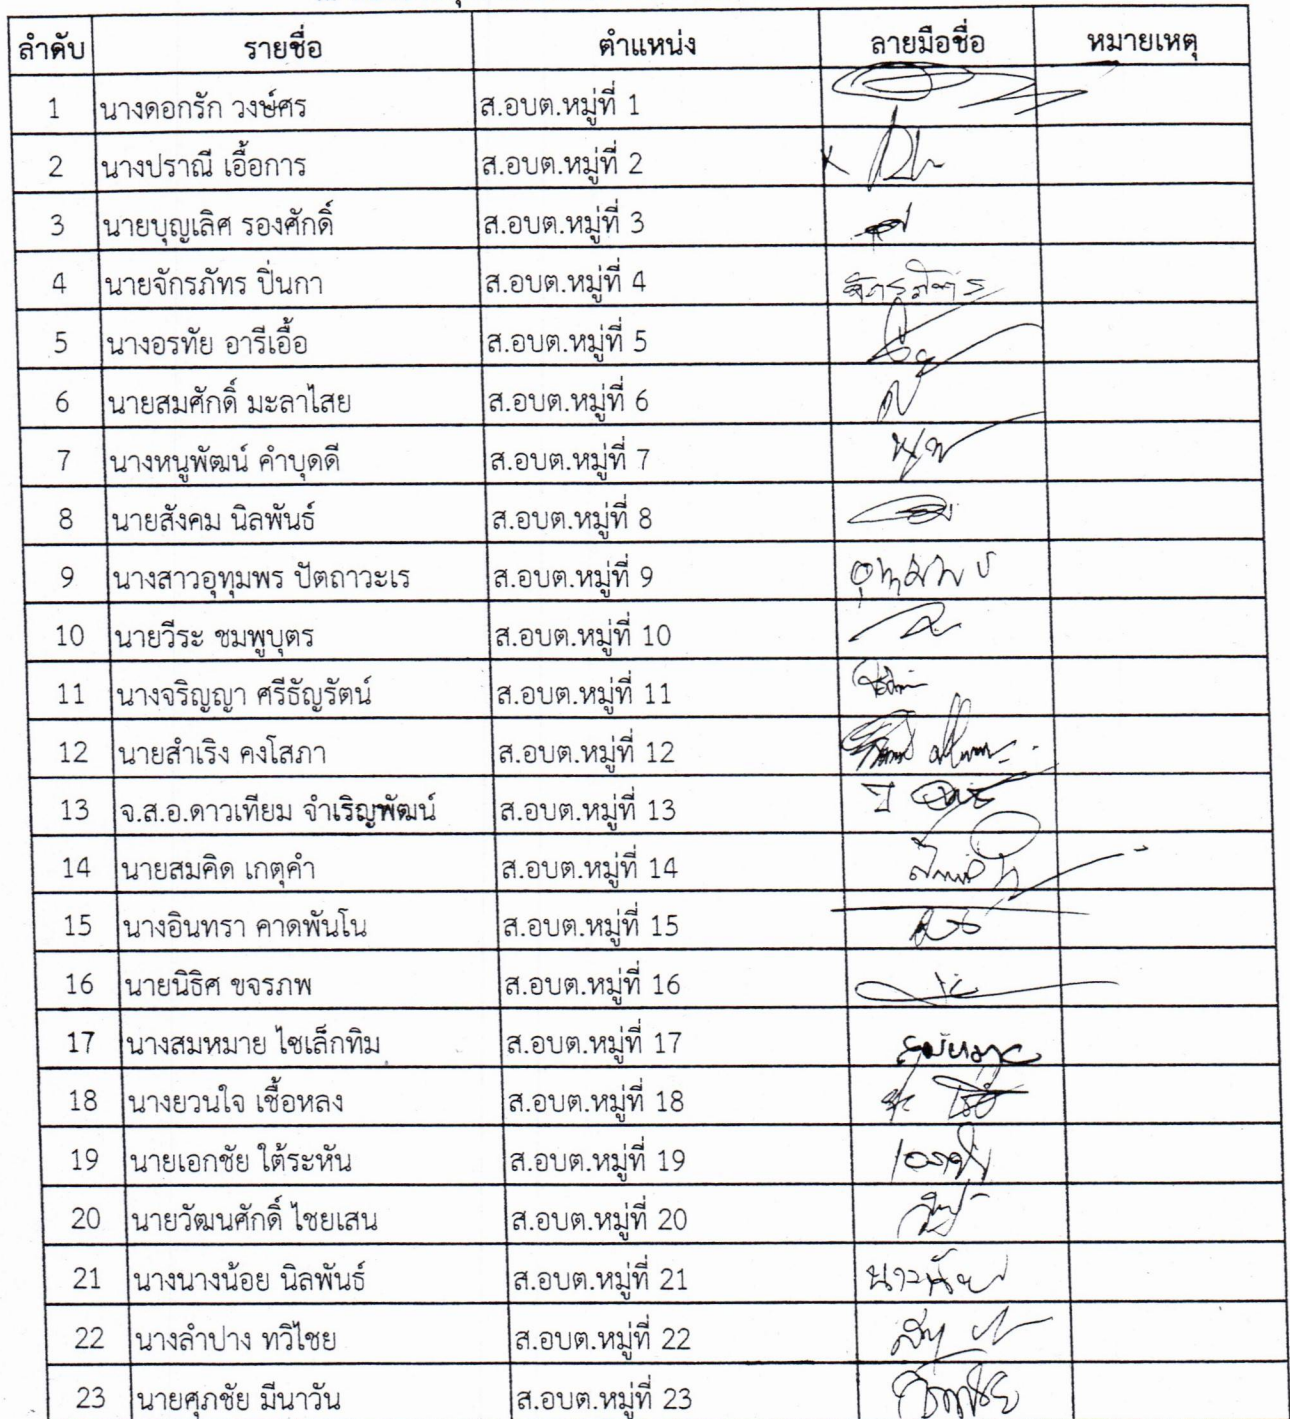 ลำดับ รายชื่อ ตำแหน่ง ลายมือชื่อ หมายเหตุ
1 นางดอกรัก วงษ์ศร ส.อบต.หมู่ที่ 1
2 นางปราณี เอื้อการ ส.อบต.หมู่ที่ 2
3 นายบุญเลิศ รองศักดิ์ ส.อบต.หมู่ที่ 3
4 นายจักรภัทร ปิ่นกา ส.อบต.หมู่ที่ 4 จักรภัทร
5 นางอรทัย อารีเอื้อ ส.อบต.หมู่ที่ 5
6 นายสมศักดิ์ มะลาไสย ส.อบต.หมู่ที่ 6
7 นางหนูพัฒน์ คำบุดดี ส.อบต.หมู่ที่ 7
8 นายสังคม นิลพันธ์ ส.อบต.หมู่ที่ 8
9 นางสาวอุทุมพร ปัตถาวะเร ส.อบต.หมู่ที่ 9 อุทุมพร
10 นายวีระ ชมพูบุตร ส.อบต.หมู่ที่ 10
11 นางจริญญา ศรีธัญรัตน์ ส.อบต.หมู่ที่ 11
12 นายสำเริง คงโสภา ส.อบต.หมู่ที่ 12
13 จ.ส.อ.ดาวเทียม จำเริญพัฒน์ ส.อบต.หมู่ที่ 13
14 นายสมคิด เกตุคำ ส.อบต.หมู่ที่ 14
15 นางอินทรา คาดพันโน ส.อบต.หมู่ที่ 15
16 นายนิธิศ ขจรภพ ส.อบต.หมู่ที่ 16
17 นางสมหมาย ไชเล็กทิม ส.อบต.หมู่ที่ 17
18 นางยวนใจ เชื้อหลง ส.อบต.หมู่ที่ 18
19 นายเอกชัย ใต้ระหัน ส.อบต.หมู่ที่ 19
20 นายวัฒนศักดิ์ ไชยเสน ส.อบต.หมู่ที่ 20
21 นางนางน้อย นิลพันธ์ ส.อบต.หมู่ที่ 21
22 นางลำปาง ทวิไชย ส.อบต.หมู่ที่ 22
23 นายศุภชัย มีนาวัน ส.อบต.หมู่ที่ 23